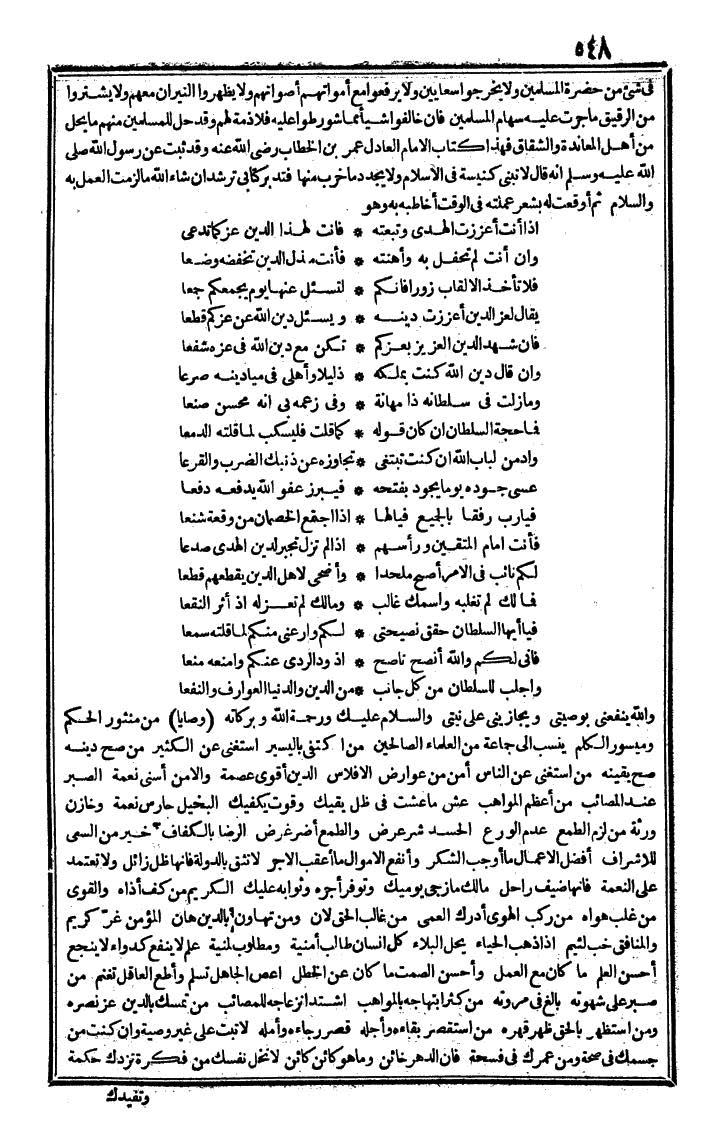 ٥٤٨
فى شئ من حضرة المسلمين ولا يخرجوا سعابين ولا يرفعوا مع أمواتهم أصواتهم ولا يظهروا النيران معهم ولا يشتروا
من الرقيق ما جرت عليه سهام المسلمين فان خالفوا شيأ مما شورطوا عليه فلا ذمة لهم وقد حل للمسلمين منهم ما يحل
من أهل المعاندة والشقاق فهذا كتاب الامام العادل عمر بن الخطاب رضى الله عنه وقد ثبت عن رسول الله صلى
الله عليه وسلم انه قال لا تبنى كنيسة فى الاسلام ولا يجدد ما خرب منها فتدبر كتابى ترشد ان شاء الله ما لزمت العمل به
والسلام ثم أوقعت له بشعر عملته فى الوقت أخاطبه به وهو
اذا أنت أعززت الهدى وتبعته * فانت لهذا الدين عز كما تدعى
وان أنت لم تحفل به وأهنته * فأنت مذل الدين تخفضه وضعا
فلا تأخذ الالقاب زورا فانكم * لتسئل عنها يوم يجمعكم جعا
يقال لعز الدين أعززت دينه * ويسئل دين الله عن عزكم قطعا
فان شهد الدين العزيز بعزكم * تكن مع دين الله فى عزه شفعا
وان قال دين الله كنت بملكه * ذليلا وأهلى فى ميادينه صرعا
ومازلت فى سلطانه ذا مهانة * وفى زعمه بى انه محسن صنعا
فما حجة السلطان ان كان قوله * كما قلت فليسكب لما قلته الدمعا
وادمن لباب الله ان كنت تبتغى * تجاوزه عن ذنبك الضرب والقرعا
عسى جوده يوما يجود بفتحه * فيبرز عفو الله يدفعه دفعا
فيارب رفقا بالجيع فيالها * اذا اجتمع الخصمان من وقعة شنعا
فأنت امام المتقين ورأسهم * اذا لم تزل تجبر لدين الهدى صدعا
لكم نائب فى الامر أصبح ملحدا * وأضحى لاهل الدين يقطعهم قطعا
فما لك لم تغلبه واسمك غالب * ومالك لم تعزله اذ أثر النقعا
فيا أيها السلطان حقق نصيحتى * لكم وارعنى منكم لما قلته سمعا
فانى لكم والله أنصح ناصح * اذود الردى عنكم وامنعه منعا
واجلب للسلطان من كل جانب * من الدين والدنيا العوارف والنفعا
والله ينفعنى بوصيتى ويجازينى على نيتى والسلام عليك ورحمة الله وبركاته (وصايا) من منثور الحكم
وميسور الكلم ينسب الى جماعة من العلماء الصالحين من اكتفى باليسير استغنى عن الكثير من صح دينه
صح يقينه من استغنى عن الناس أمن من عوارض الافلاس الدين أقوى عصمة والامن أسنى نعمة الصبر
عند المصائب من أعظم المواهب عش ما عشت فى ظل يقيك وقوت يكفيك البخيل حارس نعمة وخازن
ورثة من لزم الطمع عدم الورع الحسد شر عرض والطمع أضر غرض الرضا بالكفاف خير من السعى
للاشراف أفضل الاعمال ما أوجب الشكر وأنفع الاموال ما أعقب الاجر لا تثق بالدولة فانها ظل زائل ولا تعتمد
على النعمة فانها ضيف راحل مالك ما زجى يوميك وتوفر أجره وثوابه عليك الكريم من كف أذاه والقوى
من غلب هواه من ركب الهوى أدرك العمى من غالب الحق لان ومن تهاون بالدين هان المؤمن غر كريم
والمنافق خب لئيم اذا ذهب الحياء يحل البلاء كل انسان طالب أمنية ومطلوب لمنية علم لا ينفع كدواء لا ينجع
أحسن العلم ما كان مع العمل وأحسن الصمت ما كان عن الخطل اعص الجاهل تسلم وأطع العاقل تغنم من
صبر على شهوته بالغ فى مروته من كثر ابتهاجه بالمواهب اشتد انزعاجه للمصائب من تمسك بالدين عز نصره
ومن استظهر بالحق ظهر قهره من استقصر بقاءه وأجله قصر رجاءه وأمله لا تبت على غير وصية وان كنت من
جسمك فى صحة ومن عمرك فى فسحة فان الدهر خائن وما هو كائن كائن لا تخل نفسك من فكرة تزدك حكمة
وتفيدك